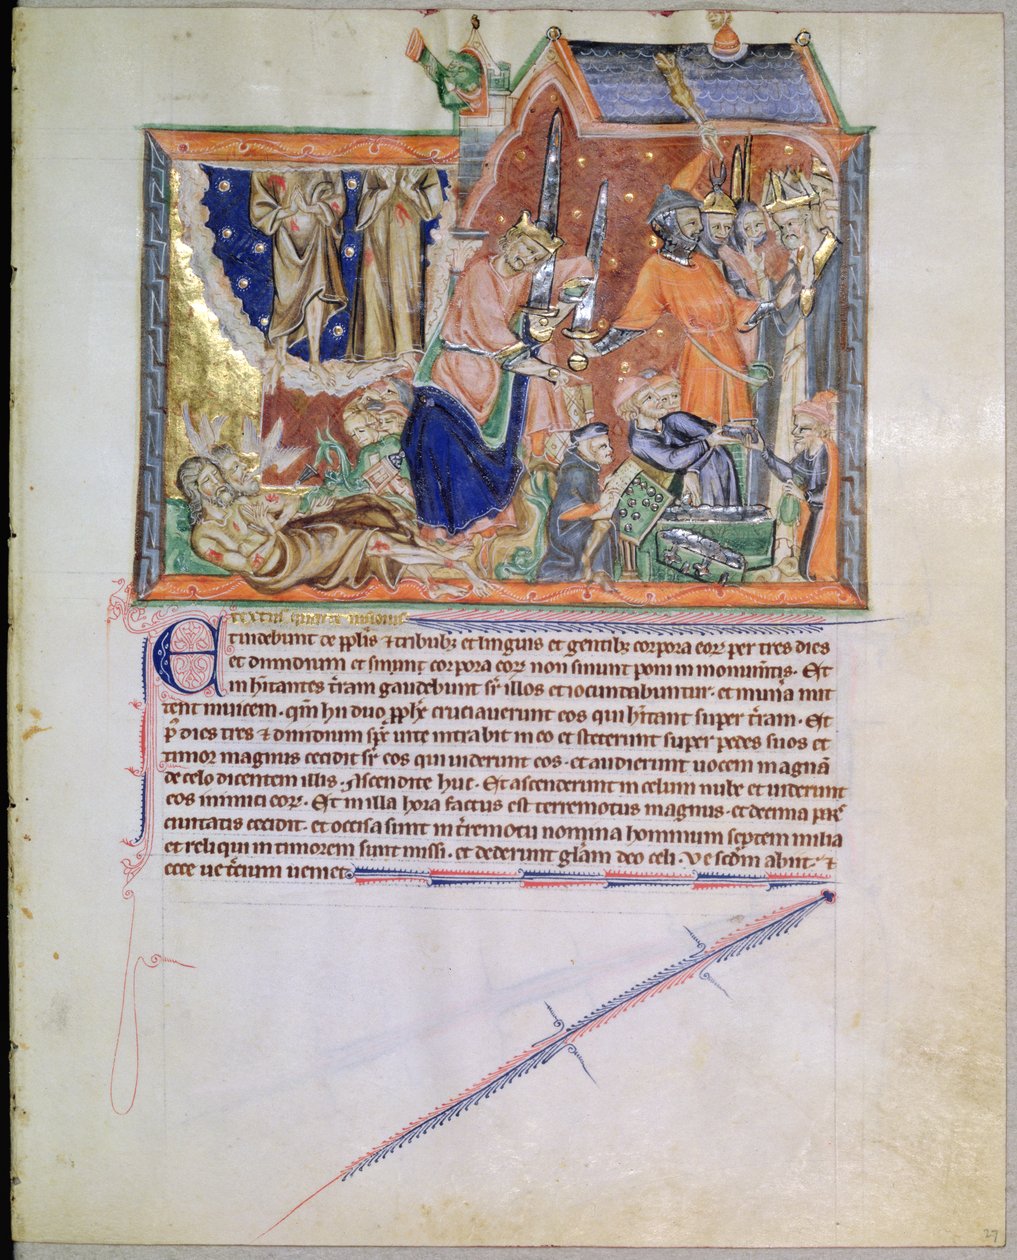 Et videbunt de pplis & tribubz et linguis et gentibz corpora eorꝝ per tres dies
et dimidium et sinunt corpora eorꝝ non sinunt poni in monumtis. Et
inhitantes tram gaudebunt sr illos et iocundabuntur. et munera mit
tent inuicem. qm hii duo pphe cruciauerunt eos qui hitant super tram. Et
p dies tres & dimidium spc uite intrabit in eo et steterunt super pedes suos et
timor magnus cecidit sr eos qui uiderunt eos. et audierunt uocem magnā
de celo dicentem illis. Ascendite huc. Et ascenderunt in celum nube et uiderunt
eos inimici eorꝝ. Et in illa hora factus est terremotus magnus. et decima pars
ciuitatis cecidit. et occisa sunt in tremotu nomina hominum septem milia
et reliqui in timorem sunt missi. et dederunt glam deo celi. Ve scdm abiit. &
ecce ue tcium ueniet
27